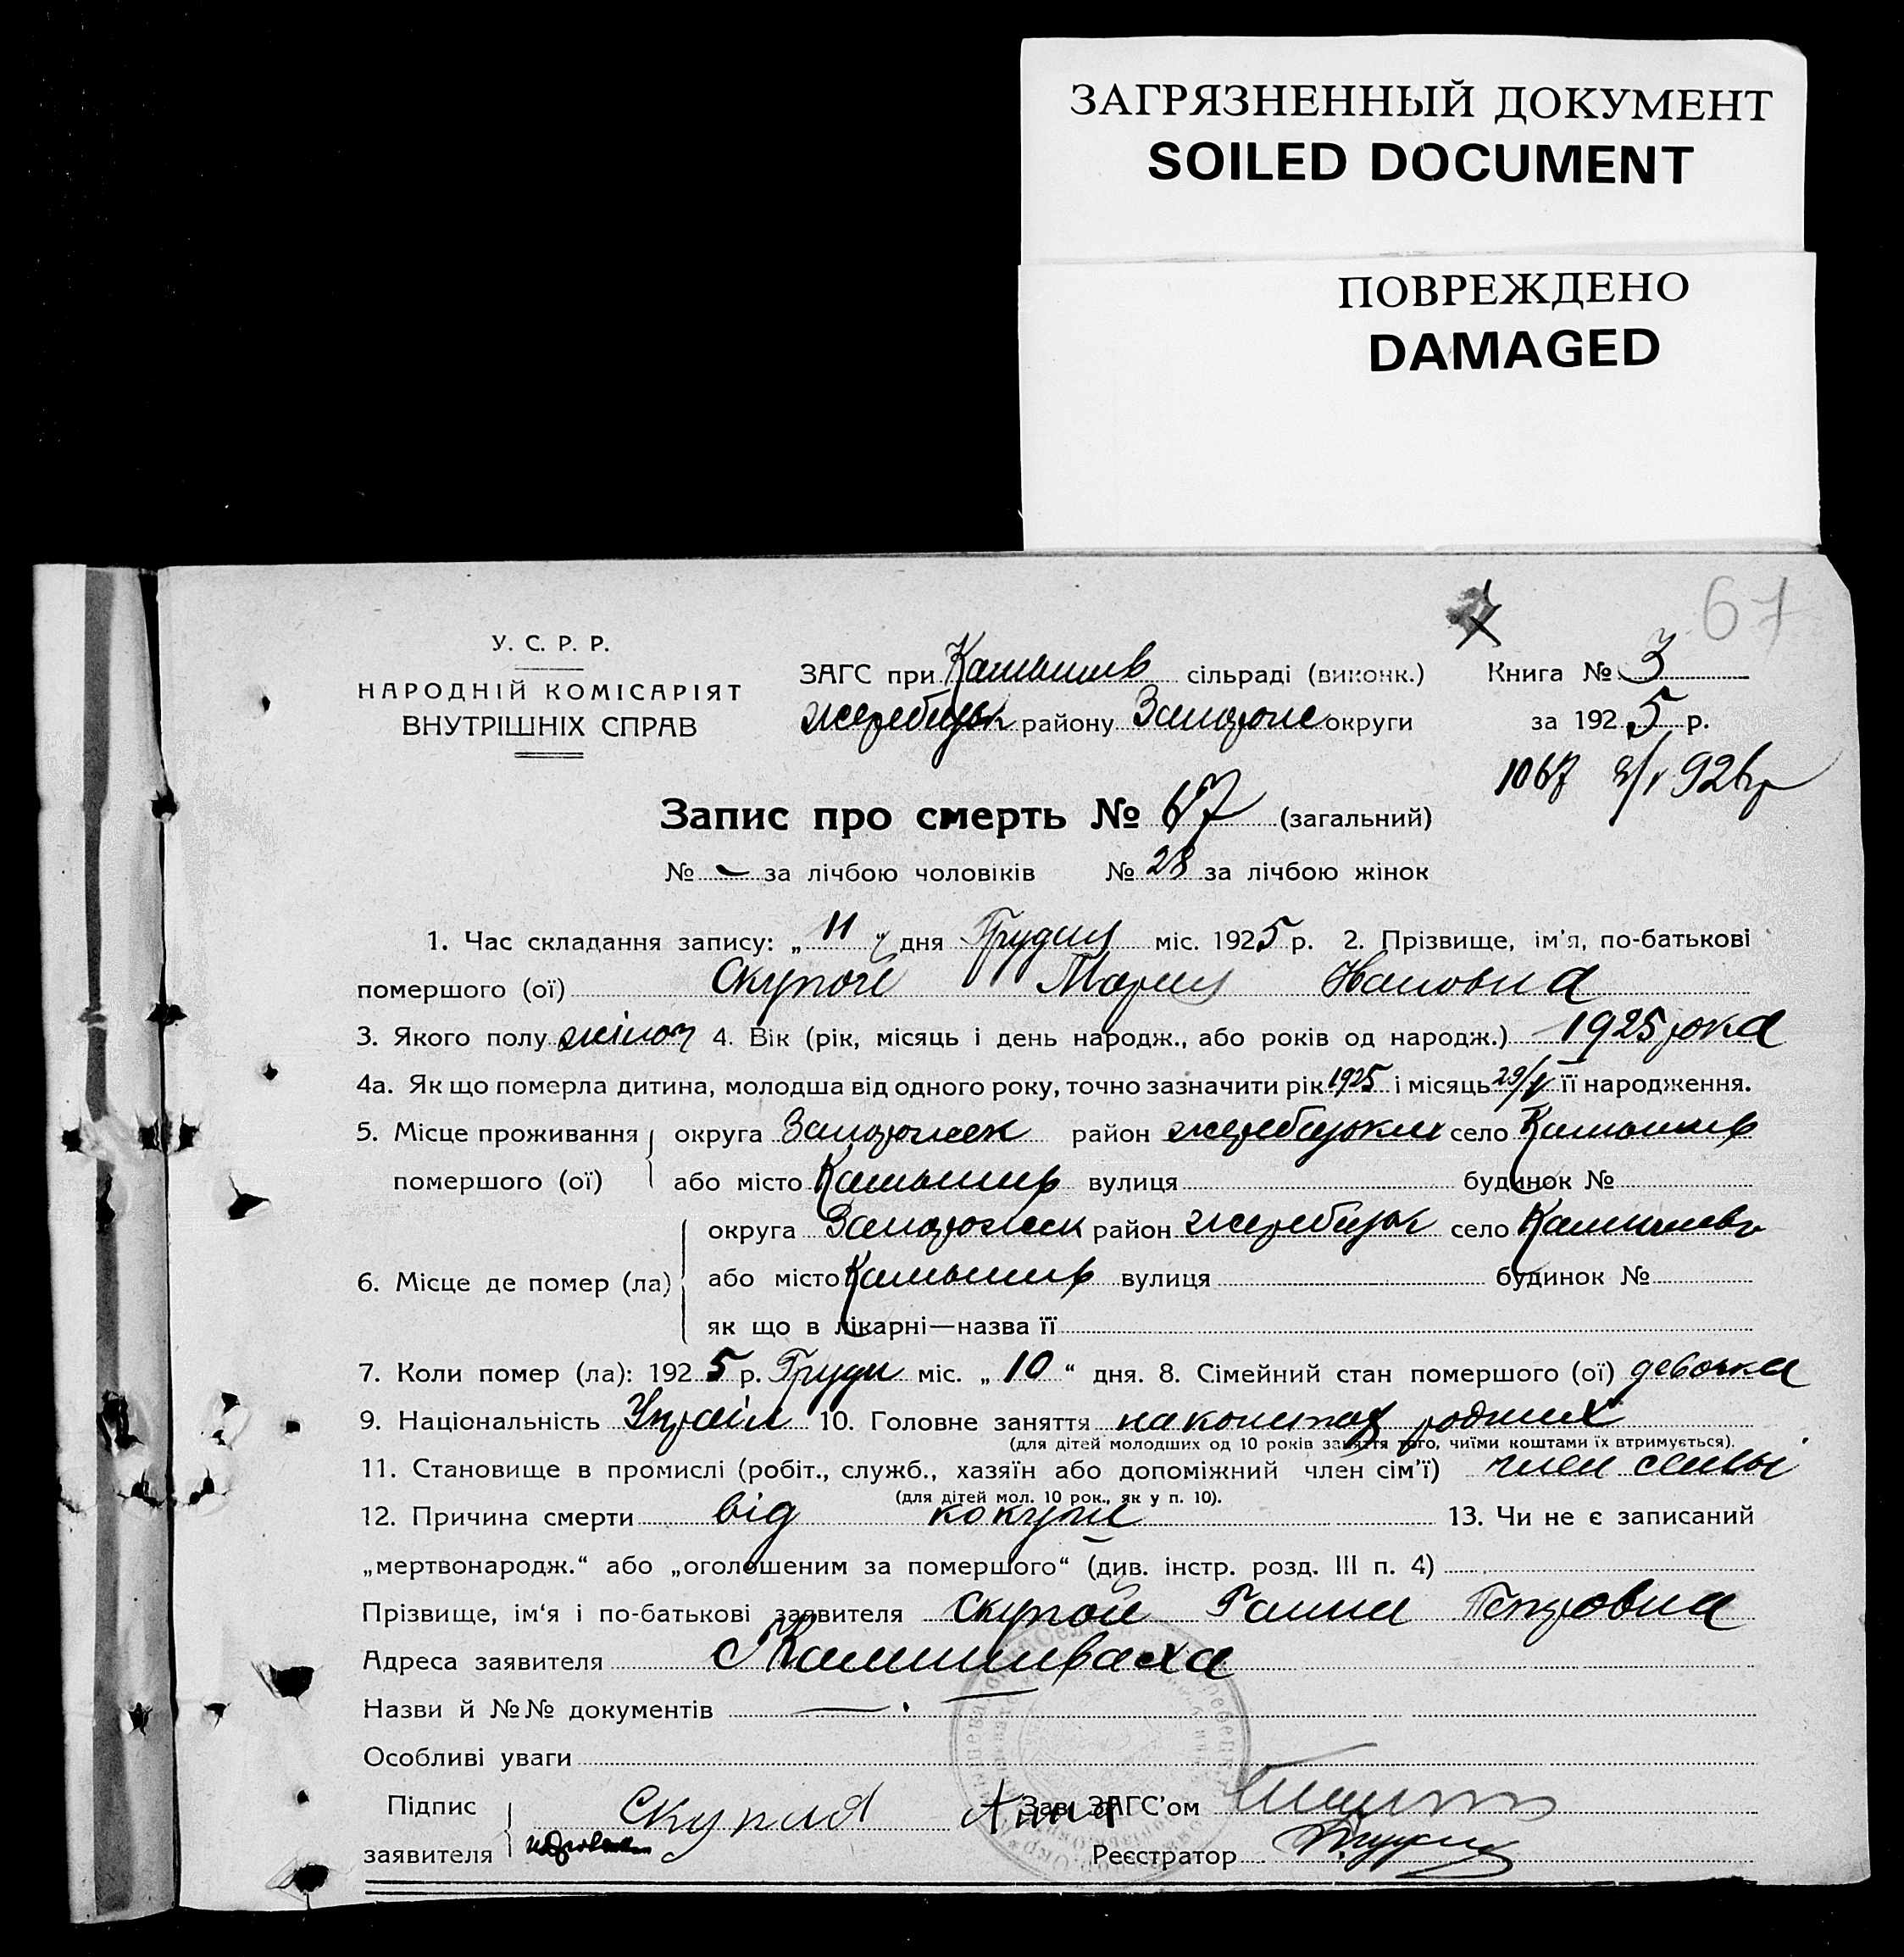 ЗАГРЯЗНЕННЫЙ ДОКУМЕНТ
SOILED DOCUMENT
ПОВРЕЖДЕНО
DAMAGED
67
У. С. Р. Р.
НАРОДНІЙ КОМІСАРІЯТ
ВНУТРІШНІХ СПРАВ
ЗАГС при Камышев сільраді (виконк.)
Жеребецьк району Запорож округи
Книга № 3
за 1925 р.
1067 926р
Запис про смерть № 67 (загальний)
№ - за лічбою чоловіків № 28 за лічбою жінок
1. Час складання запису: „11“ дня Грудня міс. 1925 р. 2. Прізвище, ім'я, по-батькові
помершого (ої) Мария Ивановна
3. Якого полу жіноч 4. Вік (рік, місяць і день народж., або років од народж.) 1925 рока
4а. Як що померла дитина, молодша від одного року, точно зазначити рік 1925 і місяць 29/V її народження.
5. Місце проживання округа Запорожск район жеребецьких село Камышев
помершого (ої) або місто Камышев вулиця будинок №
округа Запорожск район жеребецьк село Камишев
6. Місце де помер (ла) або місто Камышев вулиця будинок №
як що в лікарні—назва її
7. Коли помер (ла): 1925 р. Грудн міс. „10“ дня. 8. Сімейний стан помершого (ої) девочка
9. Національність Україн 10. Головне заняття на коштах родных
(для дітей молодших од 10 років заняття того, чиїми коштами їх втримується).
11. Становище в промислі (робіт., служб., хазяїн або допоміжний член сім'ї) член семьі
(для дітей мол. 10 рок., як у п. 10).
12. Причина смерти від 13. Чи не є записаний
„мертвонародж.“ або „оголошеним за помершого“ (див. інстр. розд. III п. 4)
Прізвище, ім'я і по-батькові заявителя Скупой Ганна Петровна
Адреса заявителя с Камишеваха
Назви й №№ документів — . —
Особливі уваги
Підпис Скупая Анна Зав. ЗАГС'ом
заявителя Реєстратор